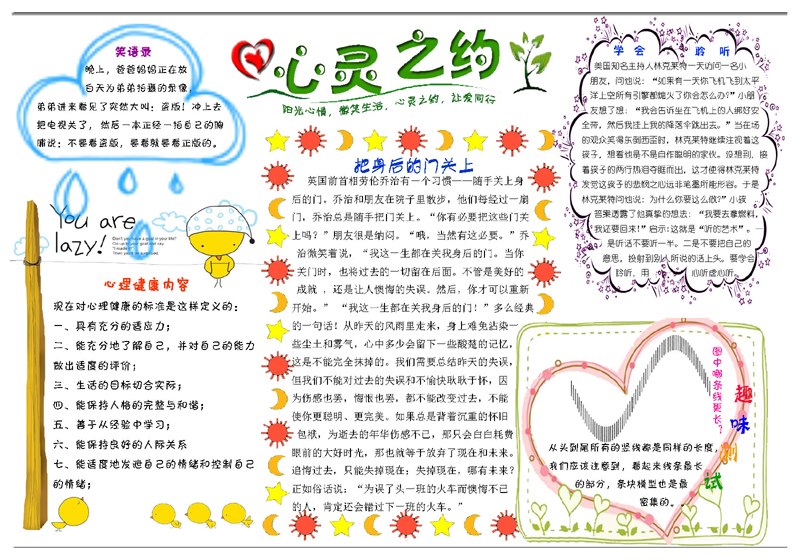 心灵之约
阳光心情，微笑生活，心灵之约，让爱同行
笑语录
晚上，爸爸妈妈正在放
白天为弟弟拍摄的录像，
弟弟进来看见了突然大叫：盗版！冲上去
把电视关了，然后一本正经一拍自己的胸
脯说：不要看盗版，要看就要看正版的。
You are
lazy!
心理健康内容
现在对心理健康的标准是这样定义的：
一、具有充分的适应力；
二、能充分地了解自己，并对自己的能力
做出适度的评价；
三、生活的目标切合实际；
四、能保持人格的完整与和谐；
五、善于从经验中学习；
六、能保持良好的人际关系
七、能适度地发泄自己的情绪和控制自己
的情绪；
把身后的门关上
英国前首相劳伦乔治有一个习惯——随手关上身
后的门。乔治和朋友在院子里散步，他们每经过一扇
门，乔治总是随手把门关上。“你有必要把这些门关
上吗？”朋友很是纳闷。“哦，当然有这必要。”乔
治微笑着说，“我这一生都在关我身后的门。当你
关门时，也将过去的一切留在后面。不管是美好的
成就，还是让人懊悔的失误。然后，你才可以重新
开始。” “我这一生都在关我身后的门！”多么经典
的一句话！从昨天的风雨里走来，身上难免沾染一
些尘土和雾气，心中多少会留下一些酸楚的记忆，
这是不能完全抹掉的。我们需要总结昨天的失误，
但我们不能对过去的失误和不愉快耿耿于怀，因
为伤感也罢，悔恨也罢，都不能改变过去，不能
使你更聪明、更完美。如果总是背着沉重的怀旧
包袱，为逝去的年华伤感不已，那只会白白耗费
眼前的大好时光，那也就等于放弃了现在和未来。
追悔过去，只能失掉现在；失掉现在，哪有未来？
正如俗话说：“为误了头一班的火车而懊悔不已
的人，肯定还会错过下一班的火车。”
学会聆听
美国知名主持人林克莱特一天访问一名小
朋友，问他说：“如果有一天你飞机飞到太平
洋上空所有引擎都熄火了你会怎么办？”小朋
友想了想：“我会告诉坐在飞机上的人绑好安
全带，然后我挂上我的降落伞跳出去。”当在场
的观众笑得东倒西歪时，林克莱特继续注视着这
孩子，想看他是不是自作聪明的家伙。没想到，接
着孩子的两行热泪夺眶而出，这才使得林克莱特
发觉这孩子的悲悯之心远非笔墨所能形容。于是
林克莱特问他说：为什么你要这么做？小孩
答案透露了他真挚的想法：“我要去拿燃料，
我还要回来！”启示：这就是“听的艺术”。一
是听话不要听一半。二是不要把自己的
意思，投射到别人所说的话上头。要学会
聆听，用心听虚心听。
图中哪条线更长？
趣味测试
从头到尾所有的竖线都是同样的长度，
我们应该注意到，看起来线条最长
的部分，条块模型也是最
密集的。